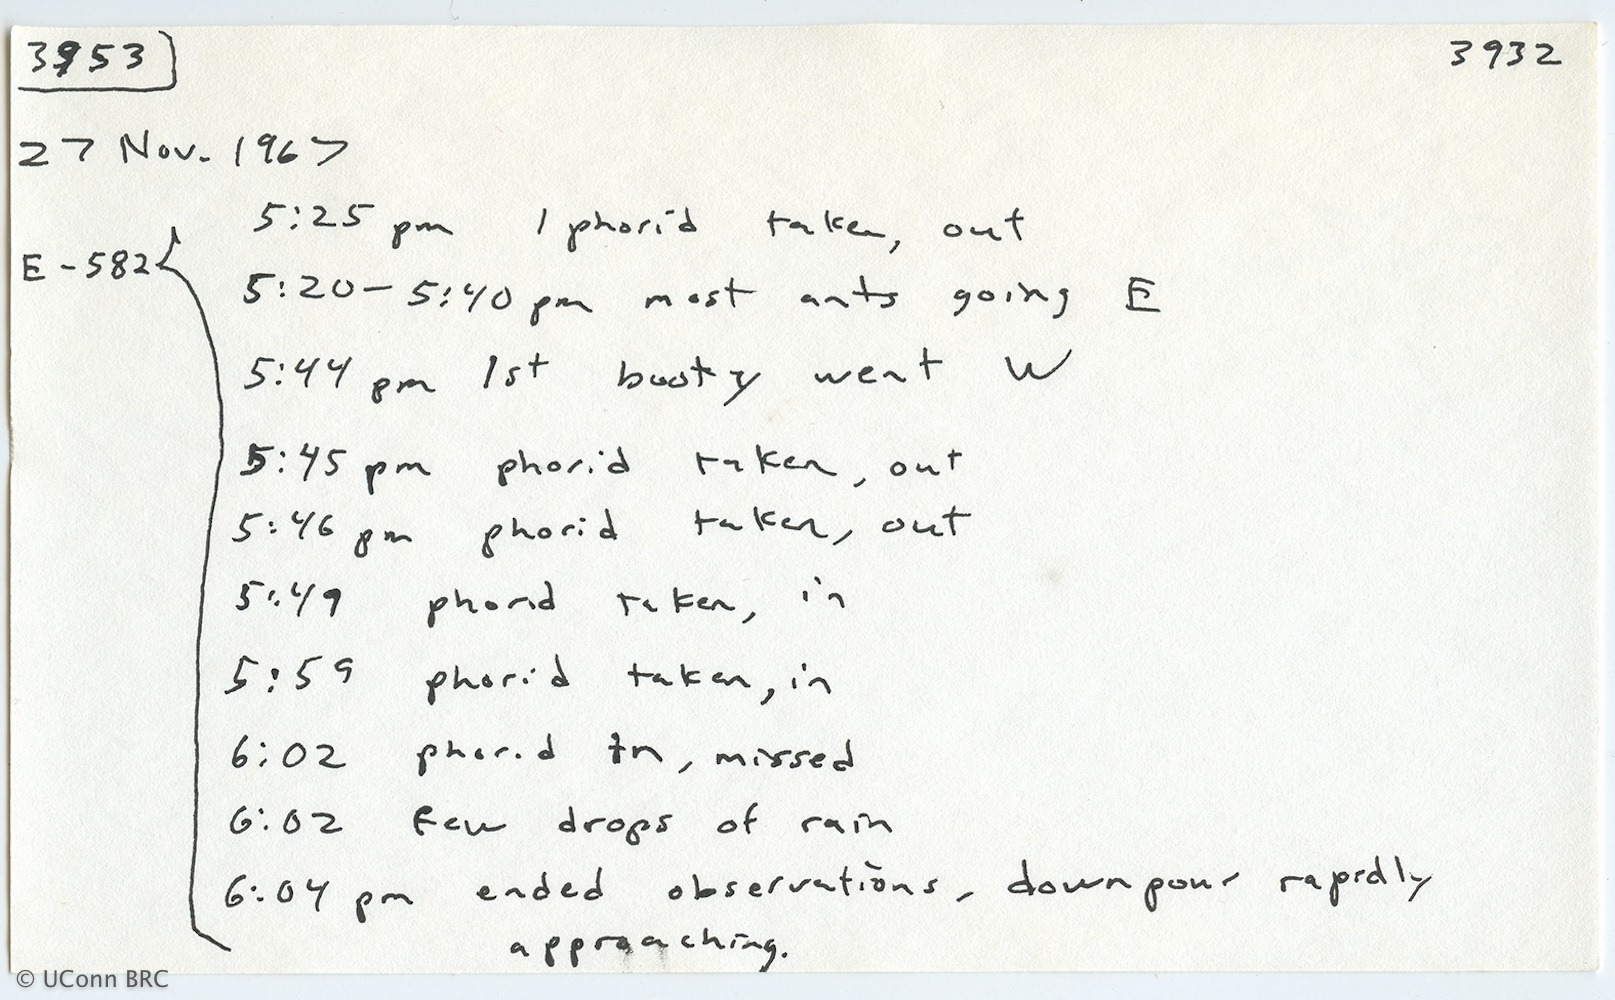 3953
3932
27 Nov. 1967
5:25 pm 1 phorid taken, out
E-582
5:20-5:40 pm most ants going E
5:44 pm 1st booty went W
5:45 pm phorid taken, out
5:46 pm phorid taken, out
5:49 phorid taken, in
5:59 phorid taken, in
6:02 phorid in, missed
6:02 few drops of rain
6:04 pm ended observations, downpour rapidly
approaching.
© UConn BRC